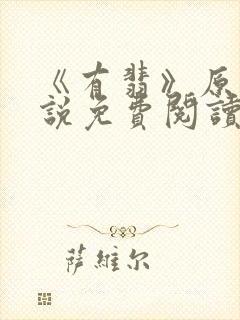 《有翡》原
説免費閱讀
萨維尔